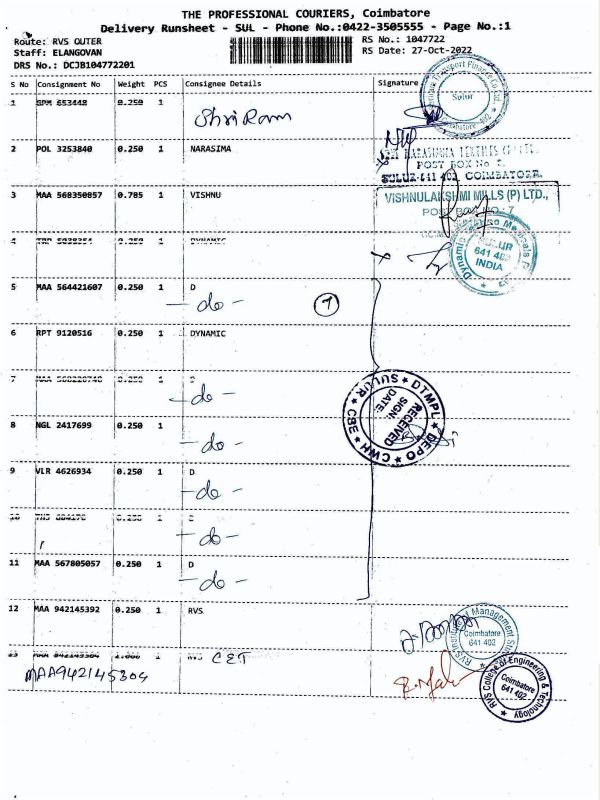 THE PROFESSIONAL COURIERS, Coimbatore
Delivery Runsheet - SUL - Phone No.:0422-3505555 - Page No.:1
Route: RVS OUTER
Staff: ELANGOVAN
DRS No.: DCJB104772201
RS No.: 1047722
RS Date: 27-Oct-2022
S No Consignment No Weight PCS Consignee Details Signature
1 GPM 653448 0.250 1 Shri Ram
Sulur
2 POL 3253840 0.250 1 NARASIMA
POST BOX No
SULUR-641 402, COIMBATORE.
3 MAA 568350857 0.785 1 VISHNU
VISHNULAKSHMI MILLS (P) LTD.,
POST BAG NO: 7
0.250 1 DYNAMIC
SULUR
641 402
INDIA
5 MAA 564421607 0.250 1 D
- do -
7
6 RPT 9120516 0.250 1 DYNAMIC
7 0.250 1
- do -
8 NGL 2417699 0.250 1
- do -
SULUR ★ DTMPL ★ DEPO ★ CWH ★ CBE ★
RECEIVED
SIGN:
DATE:
9 VLR 4626934 0.250 1 D
- do -
10 0.250 1
- do -
11 MAA 567805057 0.250 1 D
- do -
12 MAA 942145392 0.250 1 RVS
RVS Institute of Management
Coimbatore
641 402
13 RVS CET
MAA942145304
RVS College of Engineering & Technology
Coimbatore
641 402